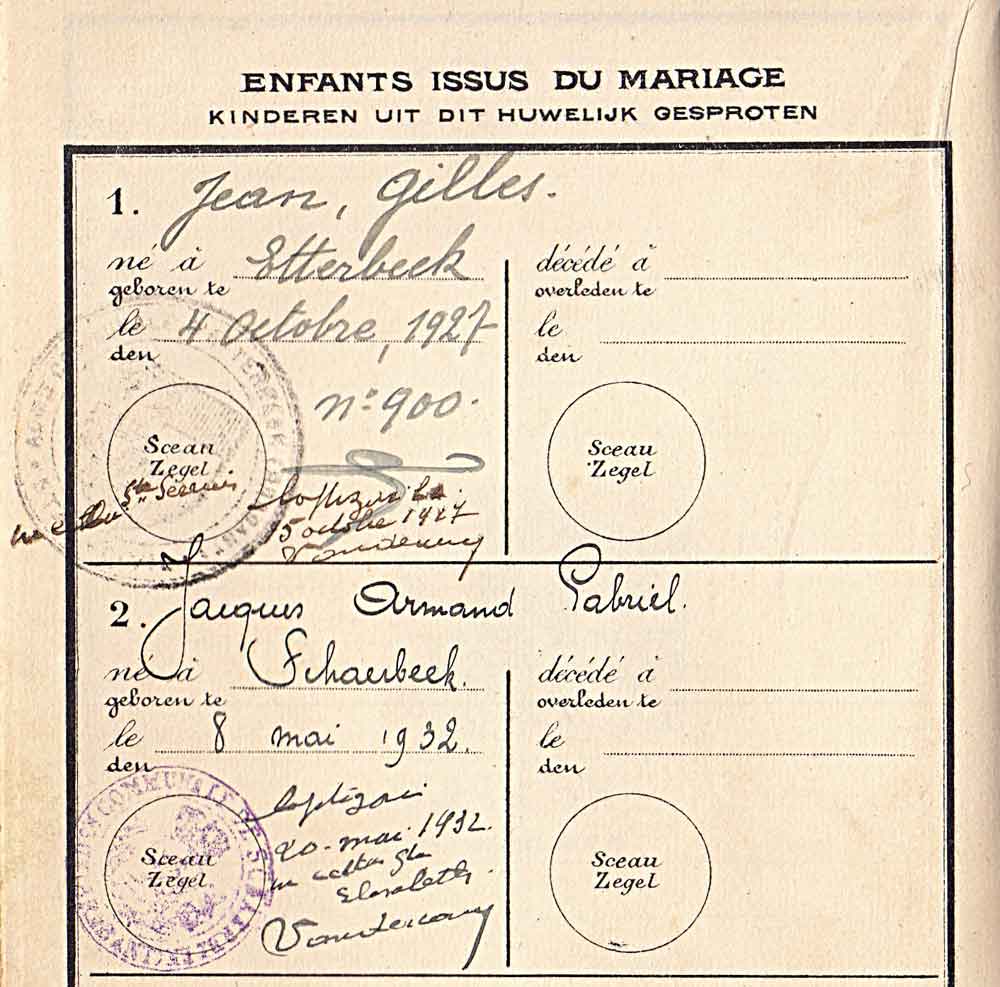 ENFANTS ISSUS DU MARIAGE
KINDEREN UIT DIT HUWELIJK GESPROTEN
1. Jean, Gilles.
né à Etterbeek
geboren te
le 4 Octobre, 1927
den
n° 900.
Sceau
Zegel
5 octobre 1927
décédé à
overleden te
le
den
Sceau
Zegel
2. Jacques Armand Gabriel.
né à Schaerbeek.
geboren te
le 8 mai 1932.
den
Sceau
Zegel
20 - mai 1932.
Elisabeth
décédé à
overleden te
le
den
Sceau
Zegel